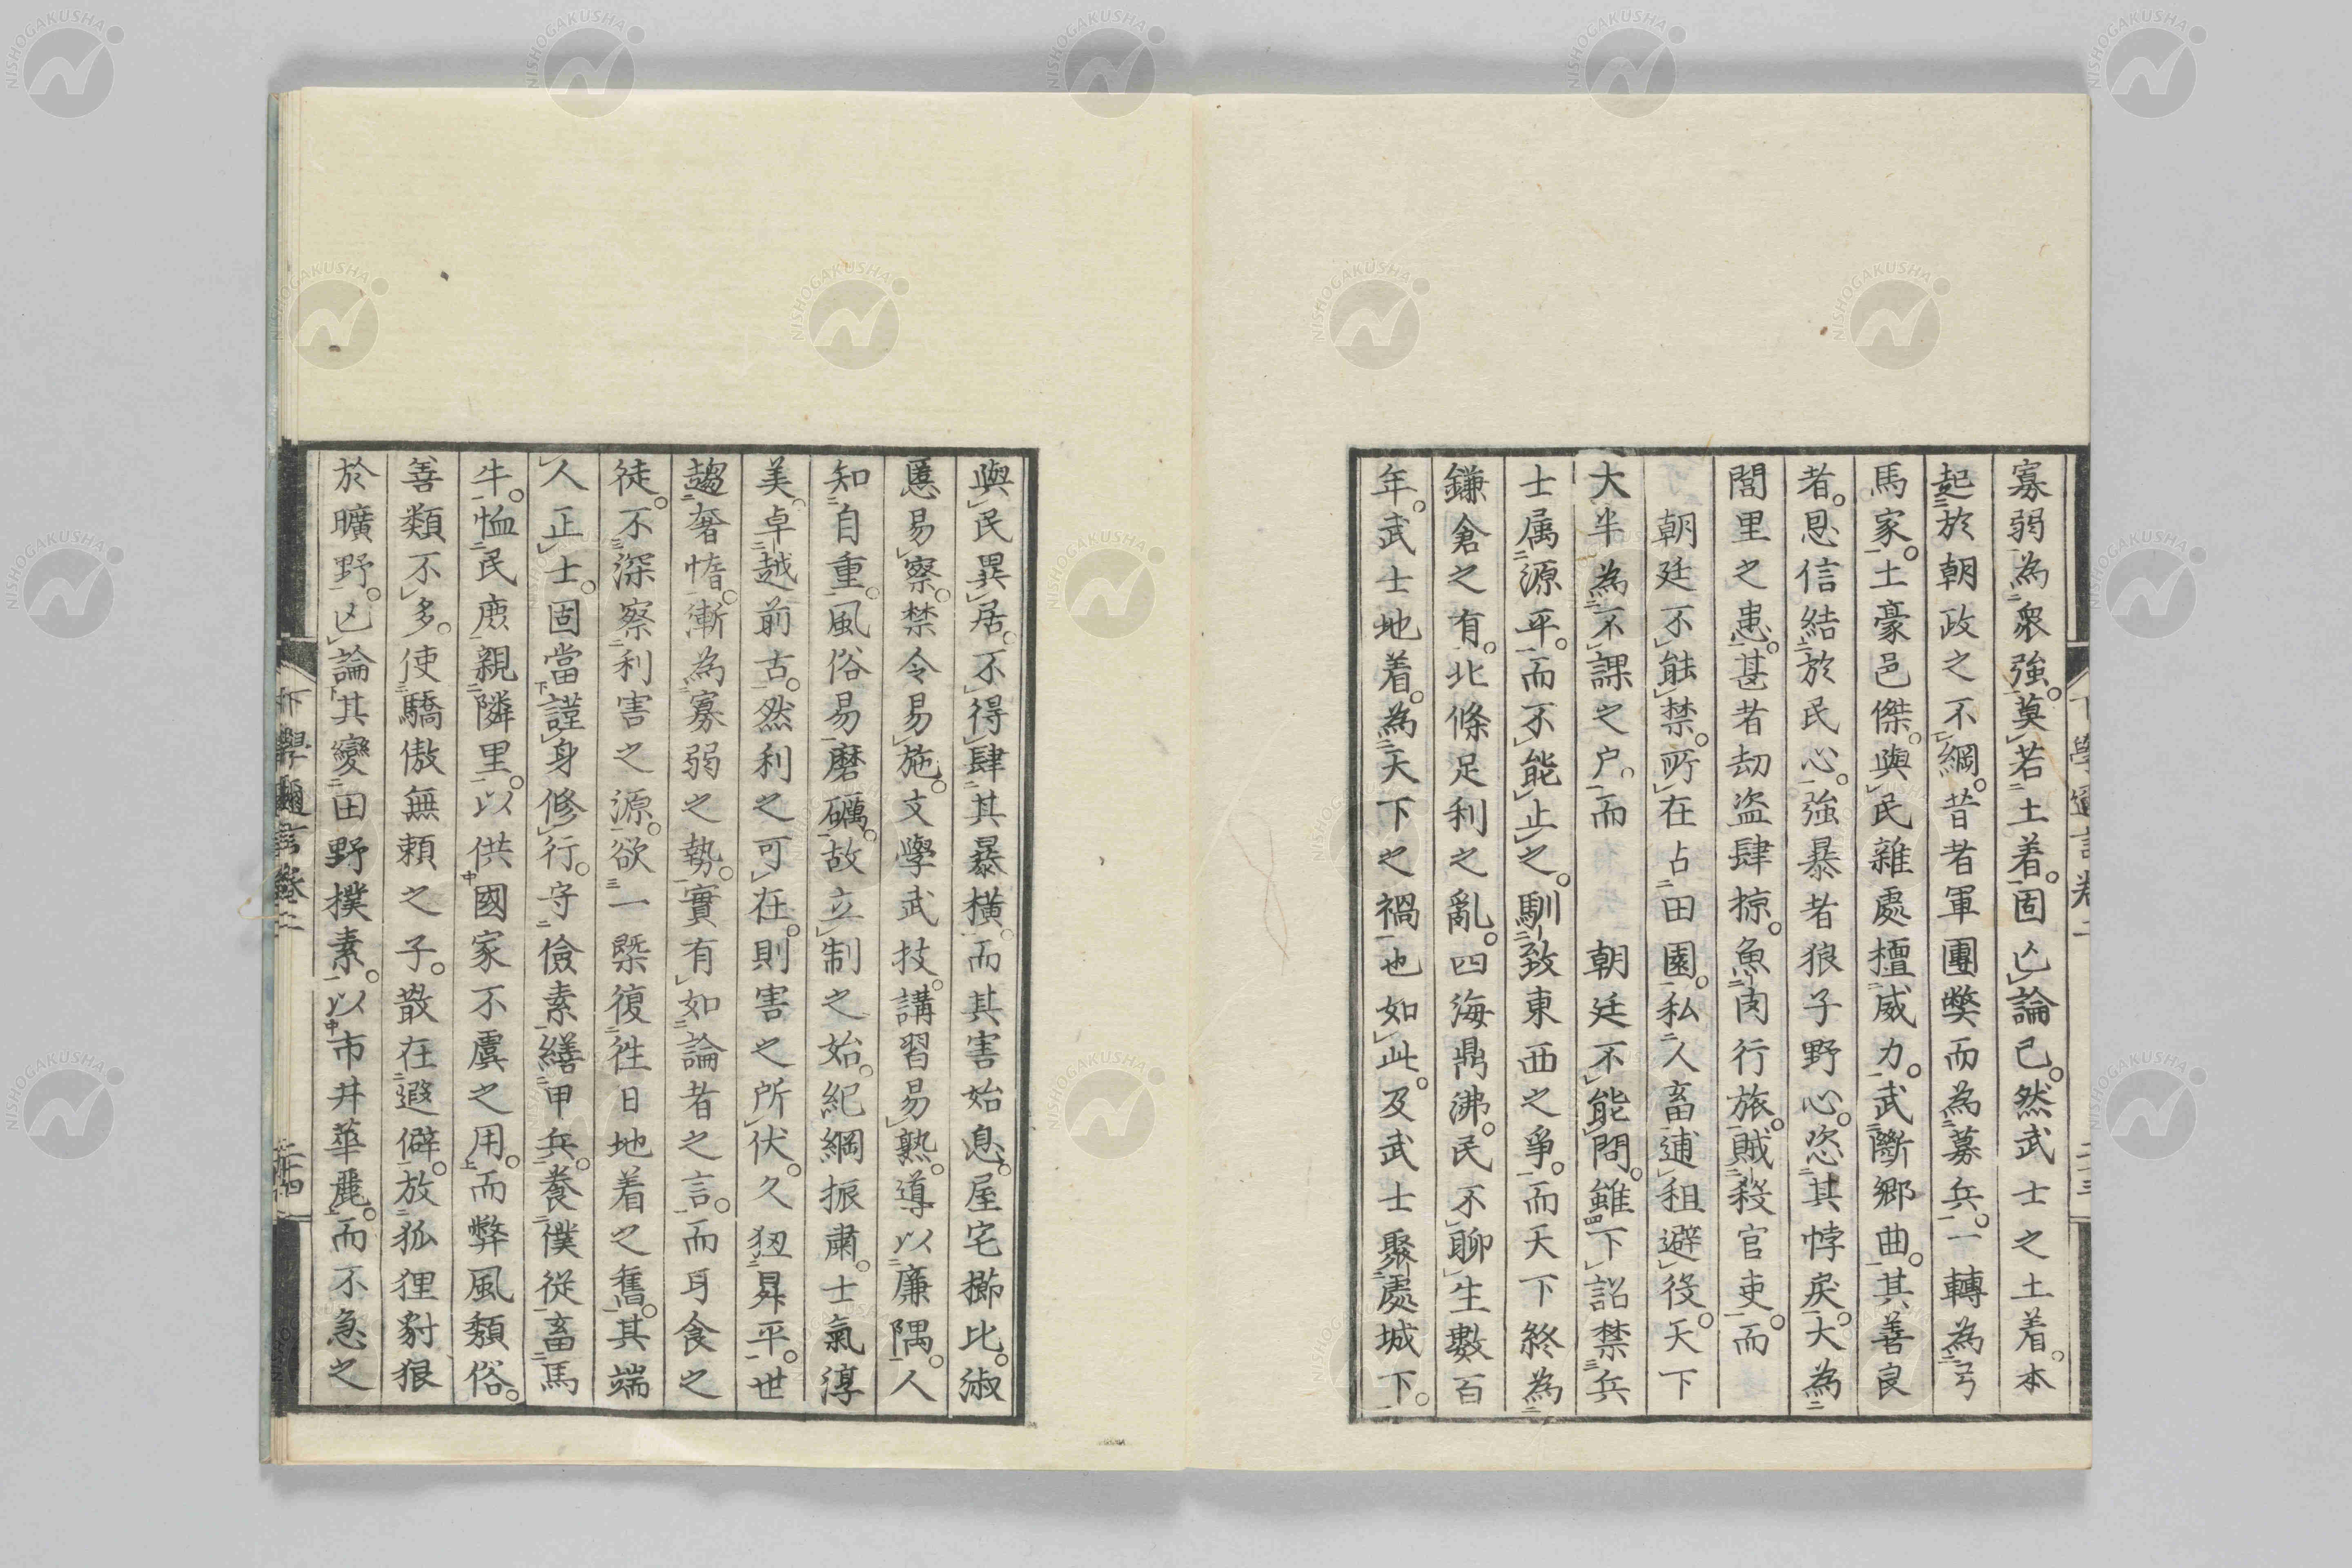 寡弱為衆強。莫若土着。固亾論已。然武士之土着。本
起於朝政之不綱。昔者軍團弊而為募兵。一轉為弓
馬家。土豪邑傑。與民雜處擅威力。武斷鄉曲。其善良
者。恩信結於民心。強暴者狼子野心。恣其悖戾。大為
閭里之患。甚者劫盜肆掠。魚肉行旅。賊殺官吏。而
朝廷不能禁。所在占田園。私人畜逋租避役。天下
大半為不課之户。而　朝廷不能問。雖下詔禁兵
士属源平。而不能止之。馴致東西之爭。而天下終為
鎌倉之有。北條足利之亂。四海鼎沸。民不聊生數百
年。武士地着。為天下之禍也如此。及武士聚處城下。
下學邇言卷二
二十三
與民異居。不得肆其暴橫。而其害始息。屋宅櫛比。淑
慝易察。禁令易施。文學武技。講習易熟。導以廉隅。人
知自重。風俗易磨礪。故立制之始。紀綱振肅。士氣淳
美。卓越前古。然利之可在。則害之所伏。久狃昇平。世
趨奢惰。漸為寡弱之勢。實有如論者之言。而耳食之
徒。不深察利害之源。欲一槩復徃日地着之舊。其端
人正士。固當謹身修行。守儉素繕甲兵。養僕從畜馬
牛。恤民庶親隣里。以供國家不虞之用。而弊風頽俗。
善類不多。使驕傲無賴之子。散在遐僻。放狐狸豺狼
於曠野。亾論其變田野撲素。以市井華麗。而不急之
下學邇言卷二
二十四